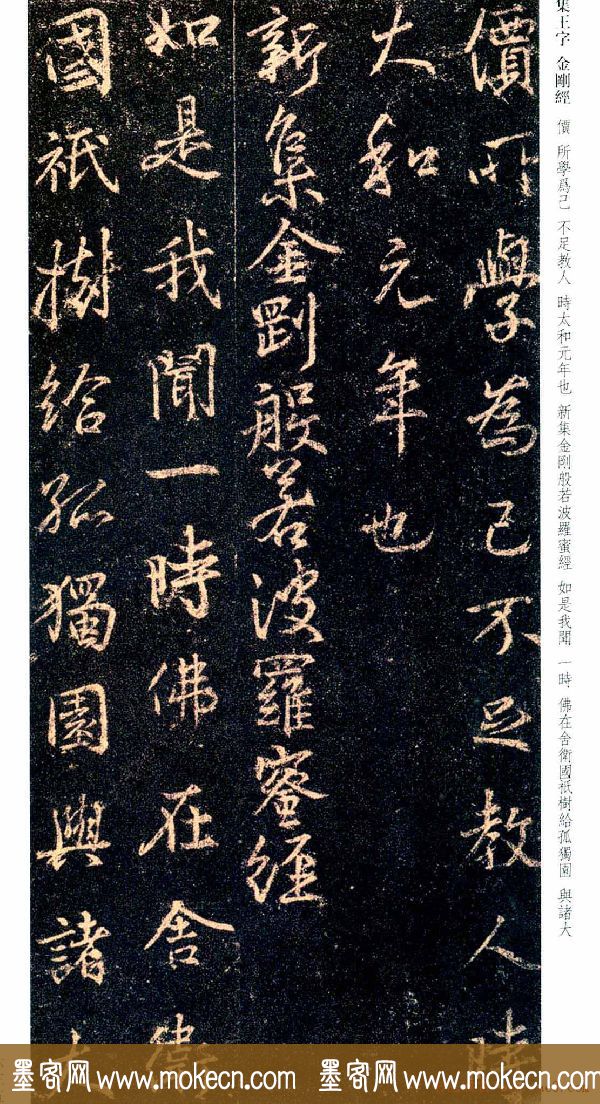 集王字 金剛經 價 所學爲己 不足教人 時太和元年也 新集金剛般若波羅蜜經 如是我聞 一時 佛在舍衛國祇樹給孤獨園 與諸大
價所學為己不足教人時
大和元年也
新集金剛般若波羅蜜經
如是我聞一時佛在舍衛
國祇樹給孤獨園與諸大
墨客网 www.mokecn.com 墨客网 www.mokecn.com